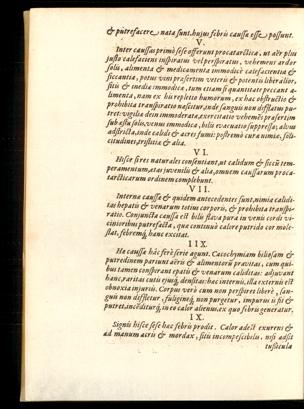 & putrefacere, nata sunt, hujus febris caussa esse possunt.
V.
Inter caussas primò sese offerunt procatarcticæ, ut aër plus
justo calefaciens inspiratus vel perspiratus, vehemens ardor
solis, alimenta & medicamenta immodicè calefacientia &
siccantia, potus vini præsertim veteris & potentis liberalior,
sitis & inedia immodica, tum etiam si quantitate peccant a-
limenta, nam ex his repletio humorum, ex hac obstructio &
prohibita transpiratio nascitur, inde sanguis non difflatus pu-
tret: vigilia dein immoderata, exercitatio vehemẽs præsertim
sub æstu solis, venus immodica, bilis evacuatio suppressa; alvus
adstricta, inde calidi & acres fumi: postremò cura nimia, soli-
citudines, tristitia & alia.
VI.
Hisce si res naturales consentiant, ut calidum & siccũ tem-
peramentum, ætas juvenilis & alia, omnem caussarum proca-
tarcticarum ordinem complebunt.
VII.
Interna caussa & quidem antecedentes sunt, nimia calidi-
tas hepatis & venarum totius corporis, & prohibita transpi-
ratio. Conjuncta caussa est bilis flava pura in venis cordi vi-
cinioribus putrefacta, quæ continuò calore putrido cor mole-
stat, febremq́; hanc excitat.
IIX.
Hæ caussæ hâc ferè serie agunt. Cacochymiam biliosam &
putredinem pariunt aëris & alimentorũ pravitas, cum qui-
bus tamen conspirant epatis & venarum caliditas: adjuvant
hanc, raritas cutis ejusq́; densitas: hæc internis, illa externis est
obnoxia injuriis. Corpus verò cum non perspiret liberè, san-
guis non difflctur, fuligineq́; non purgetur, impurus is fit &
putret, incẽditurq́;, in eo calor alienus, ex quo febris generatur.
IX.
Signis hisce sese hæc febris prodit. Calor adest exurens &
ad manum acris & mordax, sitis incompescibilis, nisi adsit
tussicula